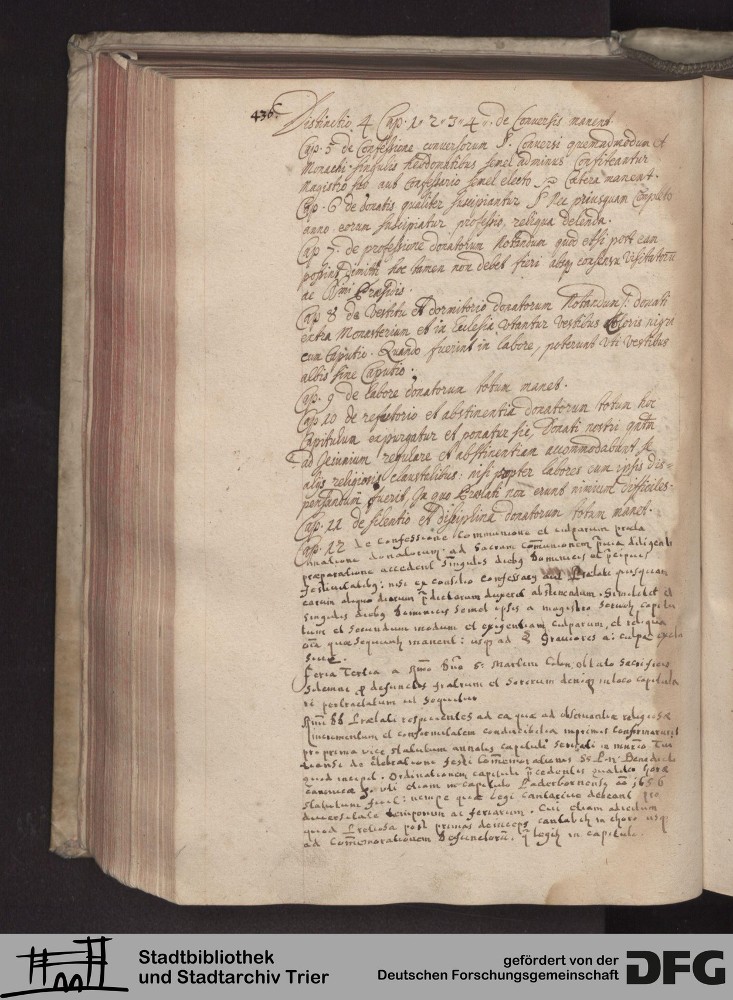 436.
Distinctio 4 Cap. 1. 2. 3. 4. de Conversis manent.
Cap. 5 de Confessione conversorum §. Conversi quemadmodum et
Monachi singulis hebdomatibus semel adminus confiteantur
Magistro suo aut Confessario semel electo Cætera manent.
Cap. 6 de donatis qualiter suscipiantur §. Nec priusquam completo
anno eorum suscipiatur professio, reliqua delenda.
Cap 7. de professione donatorum Notandum quod etsi
possint dimitti hoc tamen non debet fieri absq consensu visitatorū
ac Rmi Præsidis.
Cap 8 de Vestitu et dormitorio donatorum Notandum donati
extra Monasterium et in Ecclesia utantur vestibus coloris nigri
cum Caputio. Quando fuerint in labore, poterunt uti vestibus
albis sine Caputio.
Cap. 9 de labore donatorum totum manet.
Cap. 10 de refectorio et abstinentia donatorum totum hoc
Capitulum expurgatur et ponatur sic, Donati nostri
ad Jeiunium regulare et abstinentiam accommodabunt se
alijs religiosis claustralibus: nisi propter labores cum ipsis dis=
pensandum fuerit, In quo Prælati non erunt nimium difficiles.
Cap. 11 de silentio et disciplina donatorum totum manet.
Cap. 12 de confessione Communione et culparum procla
matione donatorum. ad Sacram Communionem diligenti
præparatione accedent singulis diebus Dominicis et
festivitatibus: nisi ex consilio confessarij aut Prælati
eorum aliquo dierum abstinendum.
singulis diebus Dominicis semel ipsis a magistro
tum et secundum modum et exigentiam culparum, et reliqua
quæ sequuntur manent: usq ad § Graviores a: culpæ

feria Tertia a Rmo Dno S. Martini Colon. oblato Sacrificio
Solemni p defunctis fratrum et Sororum deniq in loco capitula
ri pertractatum ut sequitur
Rmi DD Prælati respicientes ad ea quæ ad observantiæ religiosæ
incrementum et conformitatem conducibilia imprimis confirmarunt
pro prima vice statutum annalis capituli
de celebratione festi Commemorationis Sti P. N. Benedicti
quod incipit. Ordinationem capituli præcedentis
canonicæ uti etiam in capitulo Paderbornensi aō 1656
statutum fuit: nempe quæ legi cantarive debeant pro
diversitate temporum ac feriarum. Cui etiam
quod Pretiosa post primas deinceps in choro usq
ad Commemorationem Defunctorū, legitur in capitulo.
Stadtbibliothek
und Stadtarchiv Trier
gefördert von der
Deutschen Forschungsgemeinschaft
DFG